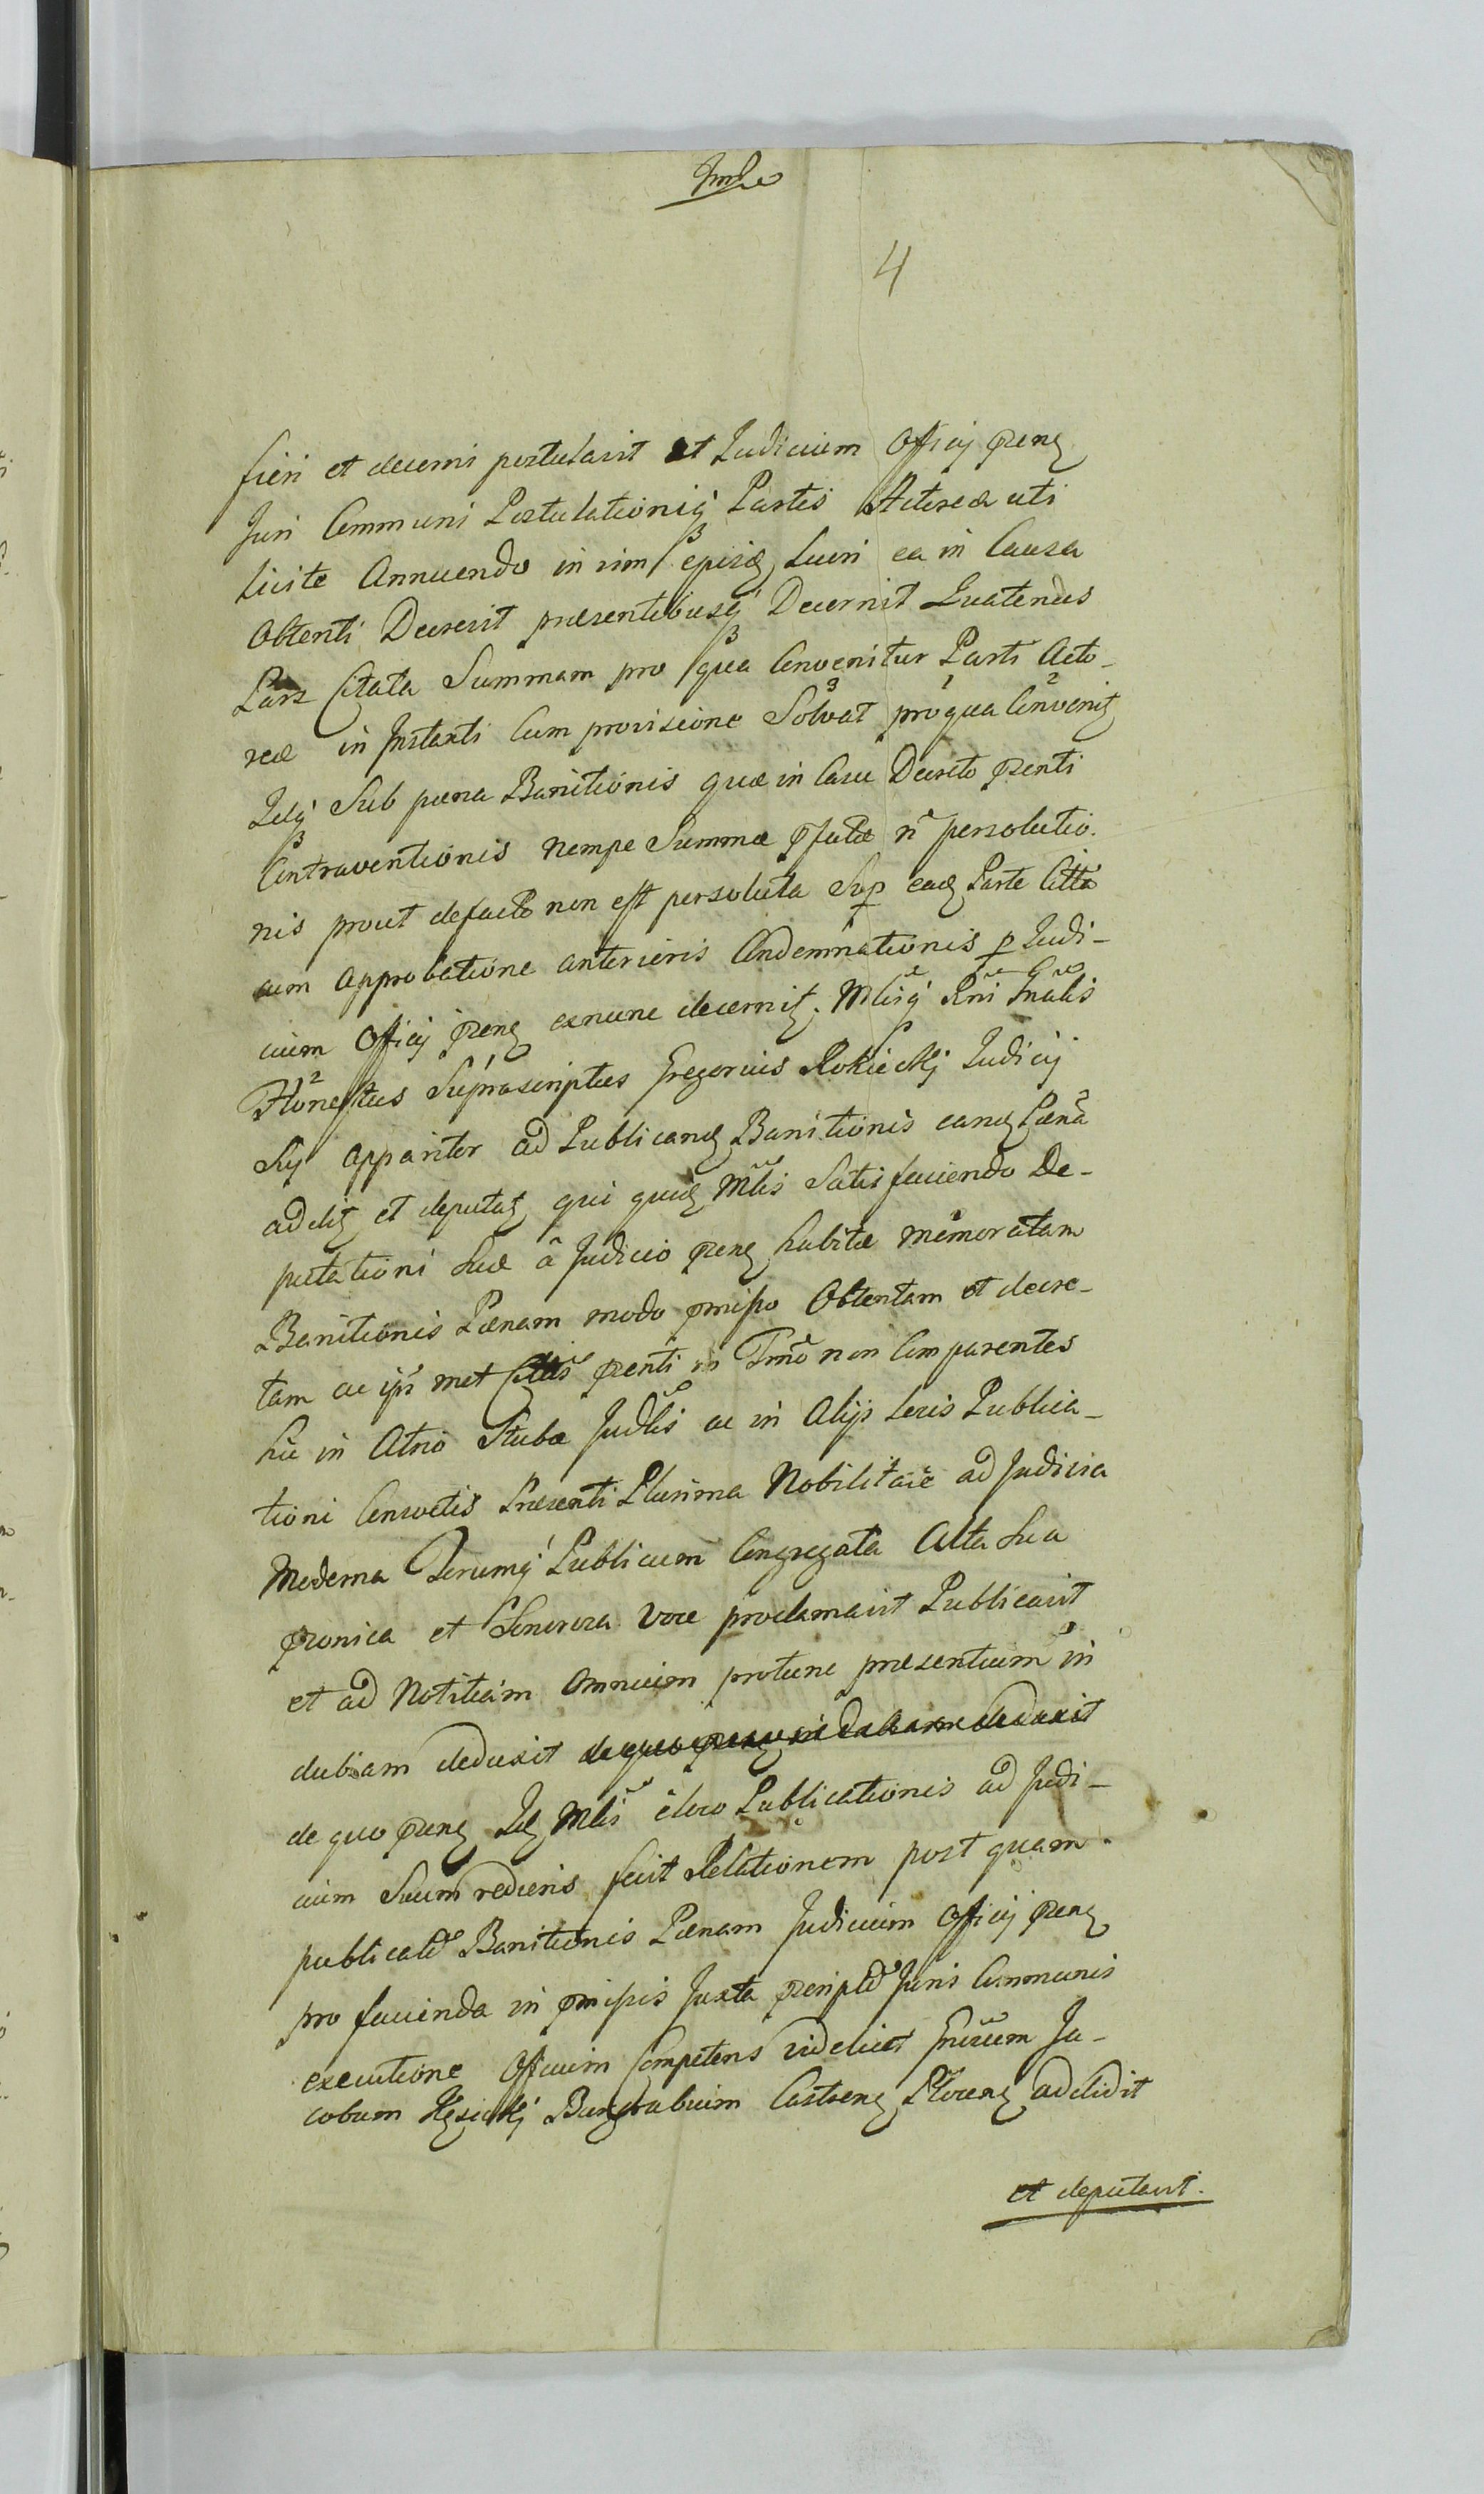 4
fieri et decerni postulavit et Judicium Officij prens
Juri Communi Postulationiq Partis Actoreæ uti
licite Annuendo in vim lucri ea in Causa
Obtenti Decrevit præsentibusq Decernit Quatenus
Pars Citata Summam pro qua Convenitur Parti Acto-
reæ in Instanti Cum provisione Solvat pro qua Convenit
Idq Sub pœna Banitionis quæ in Casu Decreto prenti
Contraventionis nempe Summæ pfatæ n persolutio.
nis prout defacto non est persoluta Sup ead Parte Citta
cum Approbatione anterioris Condemnationis p Judi-
cium Officij prens exnunc decernit. Mlisq Rni Gnalis
Honestus Suprascriptus Gregorius Rokickj Judicij
Sui apparitor ad Publicand Banitionis eand Pœna
addit et deputat qui quid Mlis Satisfaciendo De-
putationi Suæ a Judicio prens habitæ memoratam
Banitionis Pœnam modo pmisso Obtentam et decre-
tam ac ipsi met Cittis prenti in Tmno non Comparentes
hic in Atrio Stubæ Judlis ac in Alijs locis Publica-
tioni Consvetis Præsenti Plurima Nobilitate ad Judicia
Moderna Forumq Publicum Congregata Alta Sua
pronica et Sonorosa Voce proclamavit Publicavit
et ad Notitiam Omnium protunc præsentium in
dubiam deduxit
de quo prens Id Mlis eloco Publicationis ad Judi-
cium Suum rediens fecit Relationem post quam
publicata Banitionis Pœnam Judicium Officij prens
pro facienda in pmissis Juxta prescripta Juris Communis
executione Officium Competens videlicet Gnosum Ja-
cobum Burgrabium Castrens addidit
et deputavit.